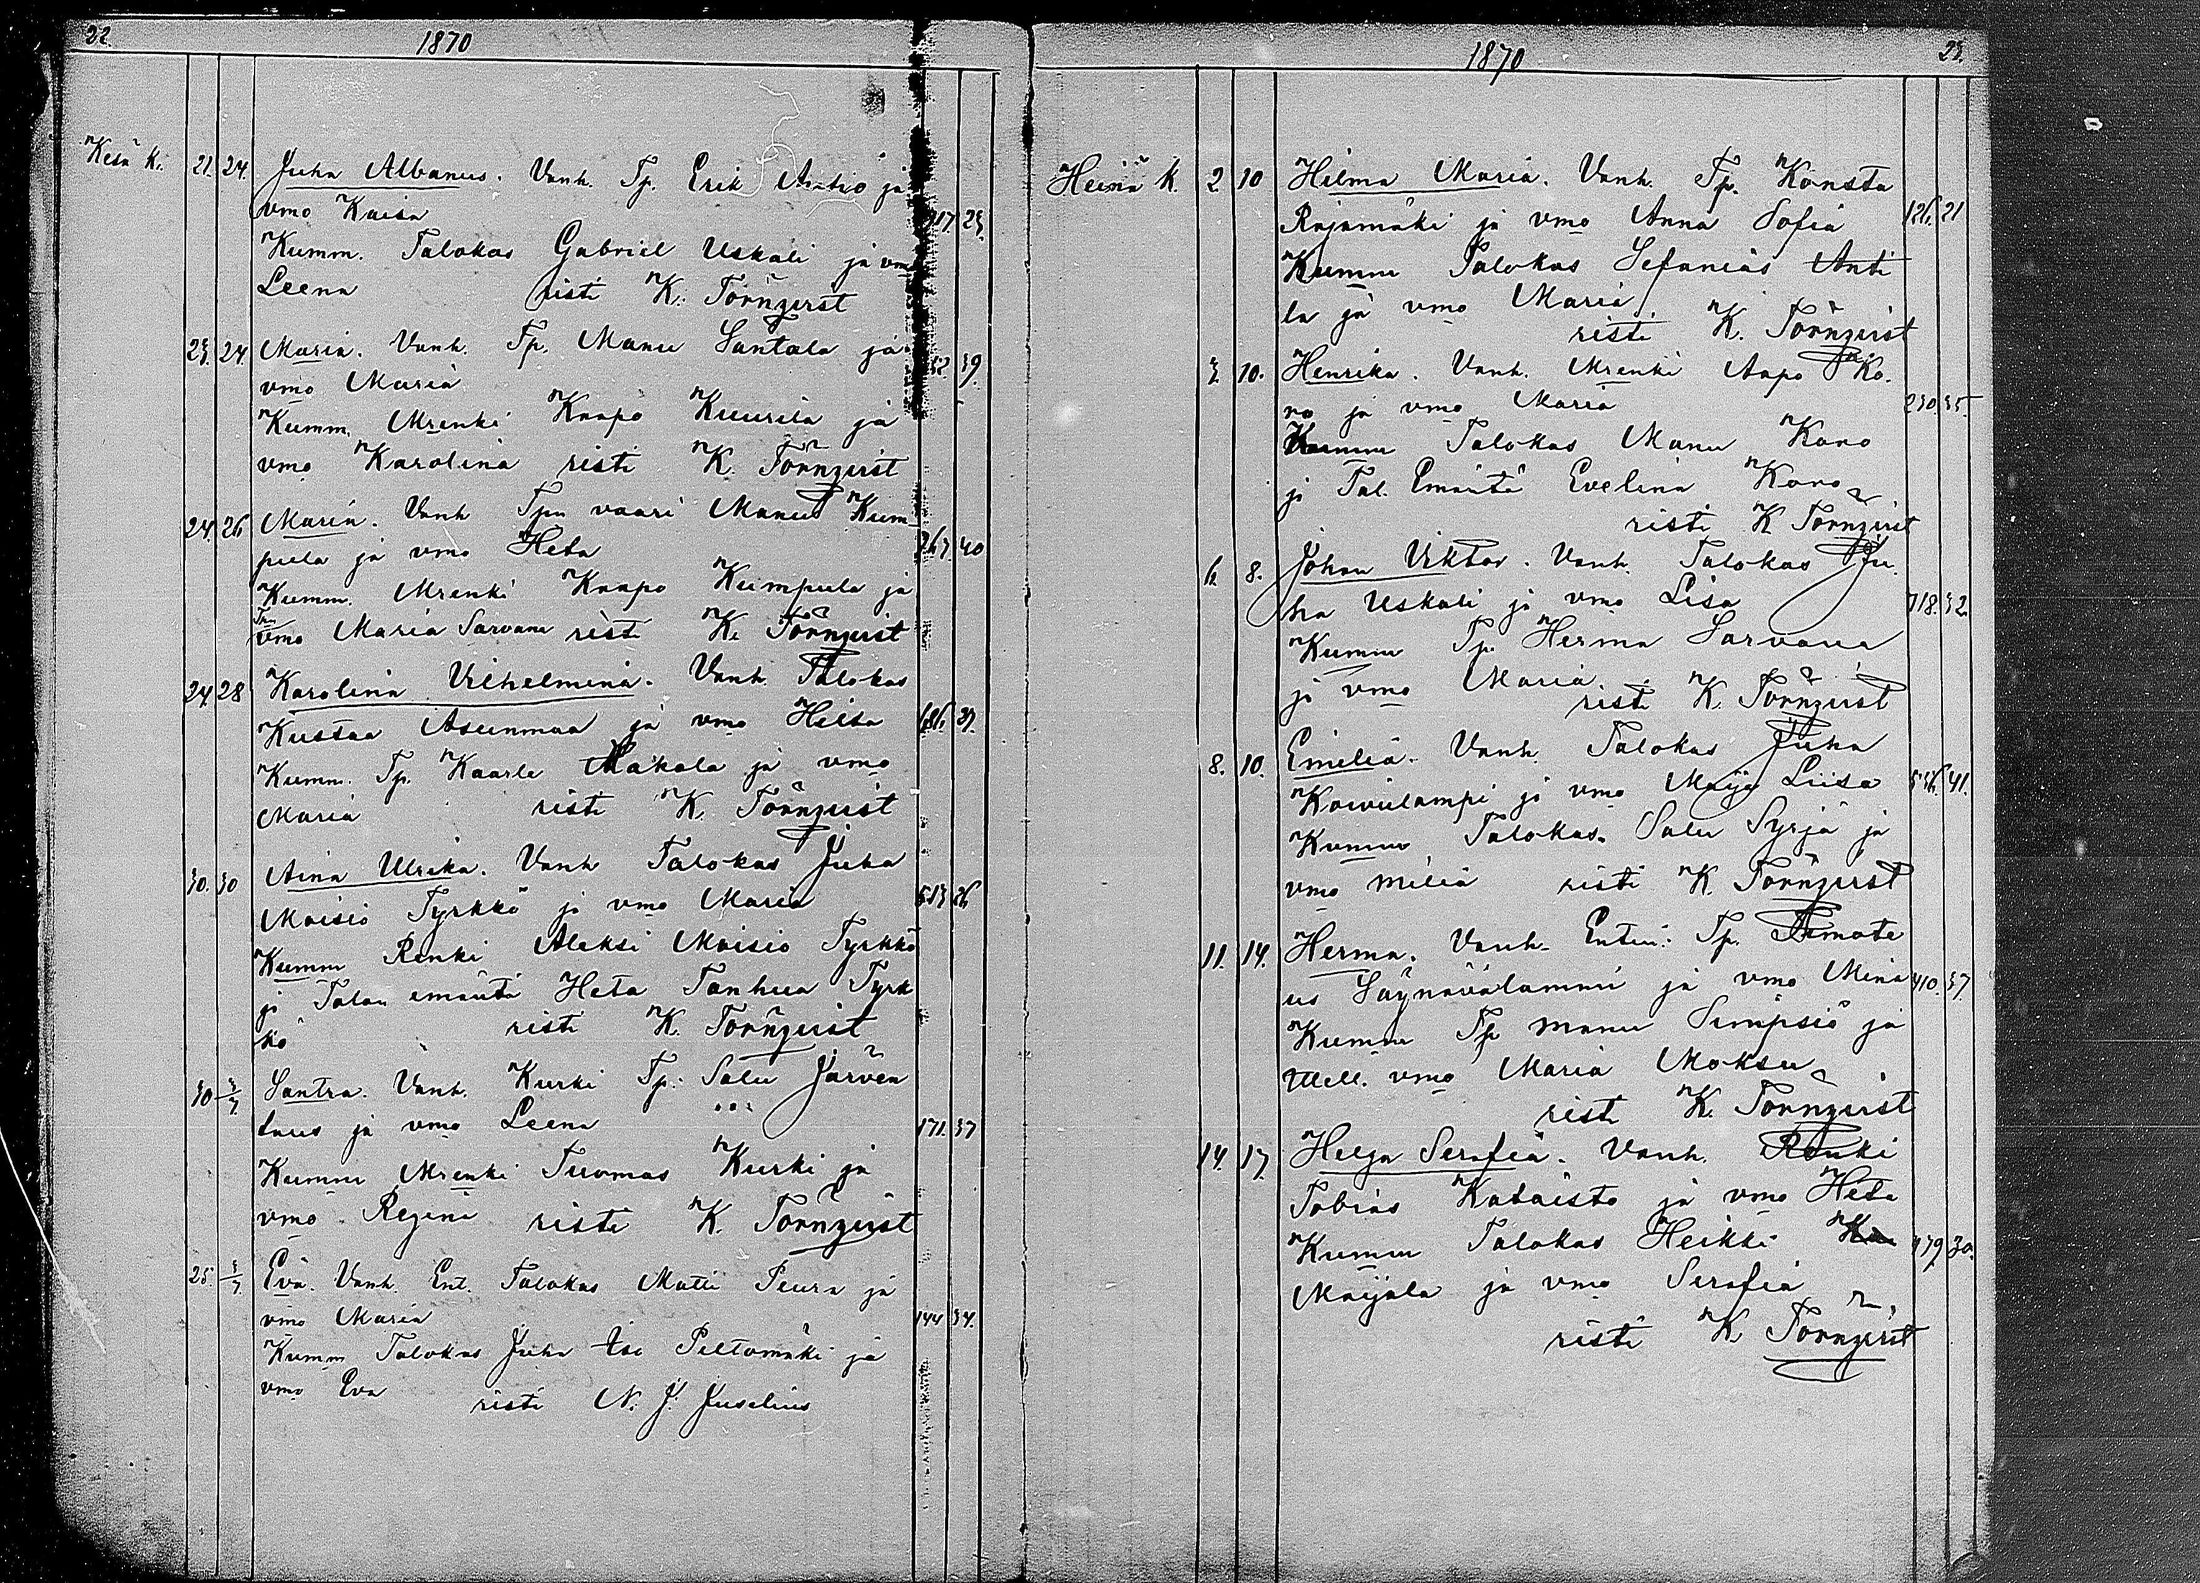 22. 1870
Kesä k. 21. 24. Juha Albanus. Vanh. Tp. Erik Antio ja
vmo Kaisa 217 23.
Kumm. Talokas Gabriel Uskali ja vmo
Leena risti K. Törnqvist
23. 24 Maria. Vanh. Tp. Manu Santala ja
vmo Maria 39.
Kumm. Mrenki Kaapo Kuurila ja
vmo Karolina risti K. Törnqvist
24. 26 Maria. Vanh Tpn vaari Manu Kum
pula ja vmo Heta 267. 40
Kumm. Mrenki Kaapo Kumpula ja
Tpn vmo Maria Sarvana risti K. Törnqvist
24 28 Karolina Vilhelmina. Vanh. Talokas
Kustaa Asunmaa ja vmo Heta 39.
Kumm. Tp. Kaarle Makala ja vmo
Maria risti K. Törnqvist
30. 30 Aina Ulrika. Vanh Talokas Juha
Moisio Tyrkkö ja vmo Maria 26
Kumm Renki Aleksi Moisio Tyrkkö
ja Talon emäntä Heta Tanhua Tyrk
kö risti K. Törnqvist
30 3/7 Santra. Vanh. Kurki Tp. Salu Järven
taus ja vmo Leena 171. 37
Kumm Mrenki Tuomas Kurki ja
vmo Regini risti K. Törnqvist
25 3/7 Eva. Vanh. Ent. Talokas Matti Peura ja
vmo Maria 144 34.
Kumm Talokas Juha Iso Peltomäki ja
vmo Eva risti N. J. Juselius
1870 23.
Heinä k. 2 10 Hilma Maria. Vanh. Tp. Konsta
Rajamäki ja vmo Anna Sofia 126. 21
Kumm Talokas Sefanias Anti
la ja vmo Maria
risti K. Törnqvist
3. 10. Henrika. Vanh. Mrenki Aapo Ko.
ro ja vmo Maria 230. 35.
Kumm Talokas Manu Koro
ja Tal. Emäntä Evelina Koro
risti K Törnqvist
6. 8. Johan Viktor. Vanh. Talokas Ju.
ha Uskali ja vmo Lisa 718. 32.
Kumm Tp. Herma Sarvana
ja vmo Maria
risti K. Törnqvist
8. 10. Emelia. Vanh. Talokas Juha
Koivulampi ja vmo Maija Liisa 41.
Kumm Talokas Salu Syrjä ja
vmo Milia risti K. Törnqvist
11. 14. Herma. Vanh. Entin. Tp. Timote
us Säynäválammi ja vmo Mina 410. 37.
Kumm Tp Manu Simpsiö ja
Mell. vmo Maria Moksu
rist K. Törnqvist
14. 17. Helga Serafia. Vanh. Renki
Tobias Kataisto ja vmo Heta
Kumm Talokas Heikki 479 30.
Maijala ja vmo Serafia
risti K Törnqvist